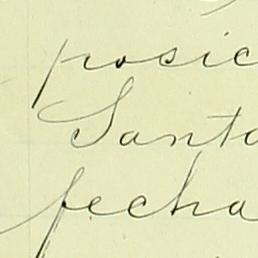 posic
Santa
fecha